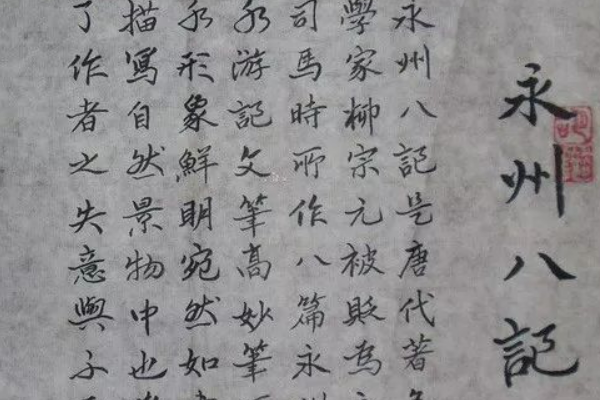 永州八記
永州八記是唐代著名
學家柳宗元被貶為永
司馬時所作八篇永州
水游記文筆高妙筆下
水形象鮮明宛然如畫
描寫自然景物中也寄
了作者之失意與不